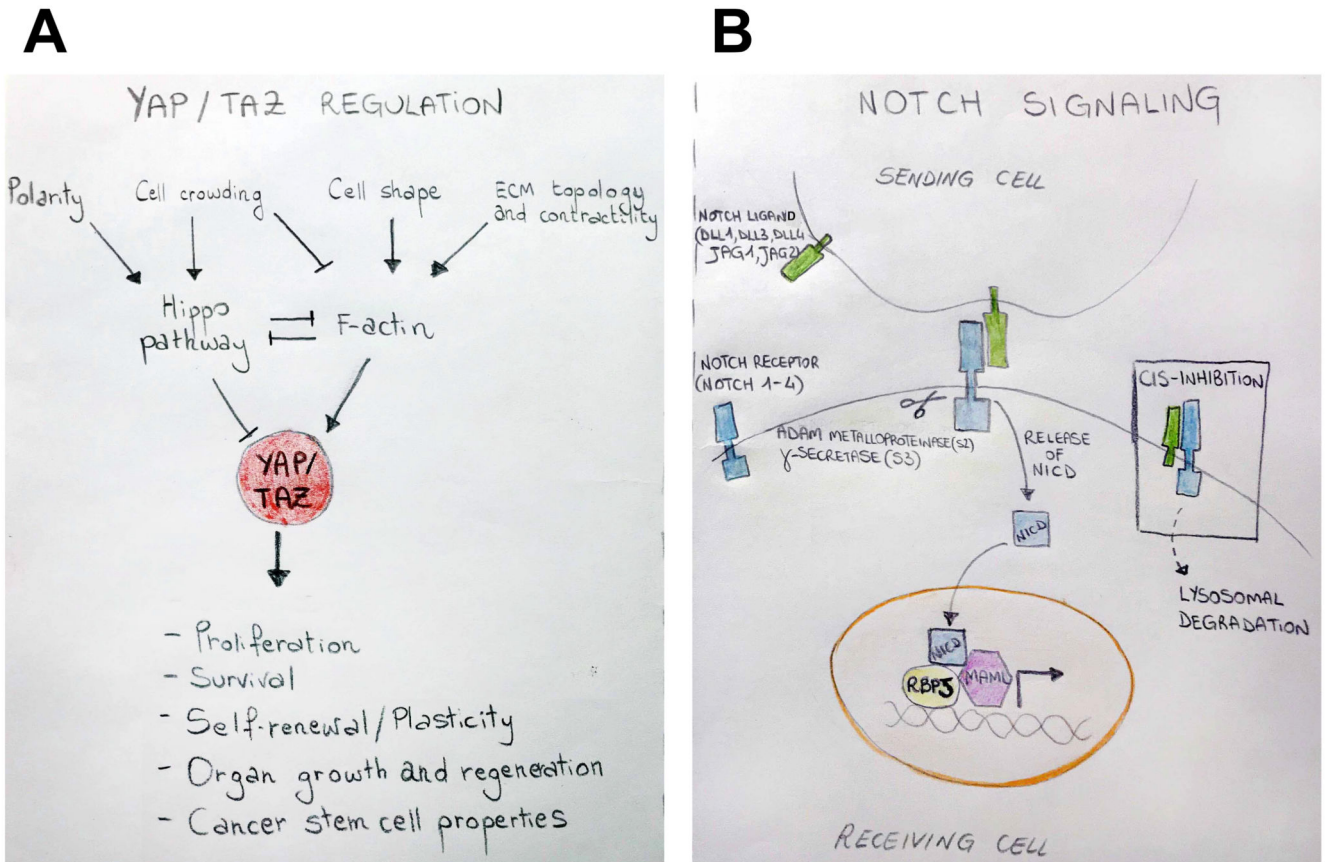 A
YAP/TAZ REGULATION
Polarity
Cell crowding
Cell shape
ECM topology
and contractility
Hippo
pathway
F-actin
YAP/
TAZ
- Proliferation
- Survival
- Self-renewal/Plasticity
- Organ growth and regeneration
- Cancer stem cell properties
B
NOTCH SIGNALING
SENDING CELL
NOTCH LIGAND
(DLL1, DLL3, DLL4
JAG1, JAG2)
NOTCH RECEPTOR
(NOTCH 1-4)
ADAM METALLOPROTEINASE (S2)
γ-SECRETASE (S3)
RELEASE
OF
NICD
CIS-INHIBITION
NICD
LYSOSOMAL
DEGRADATION
NICD
RBPJ
MAML
RECEIVING CELL